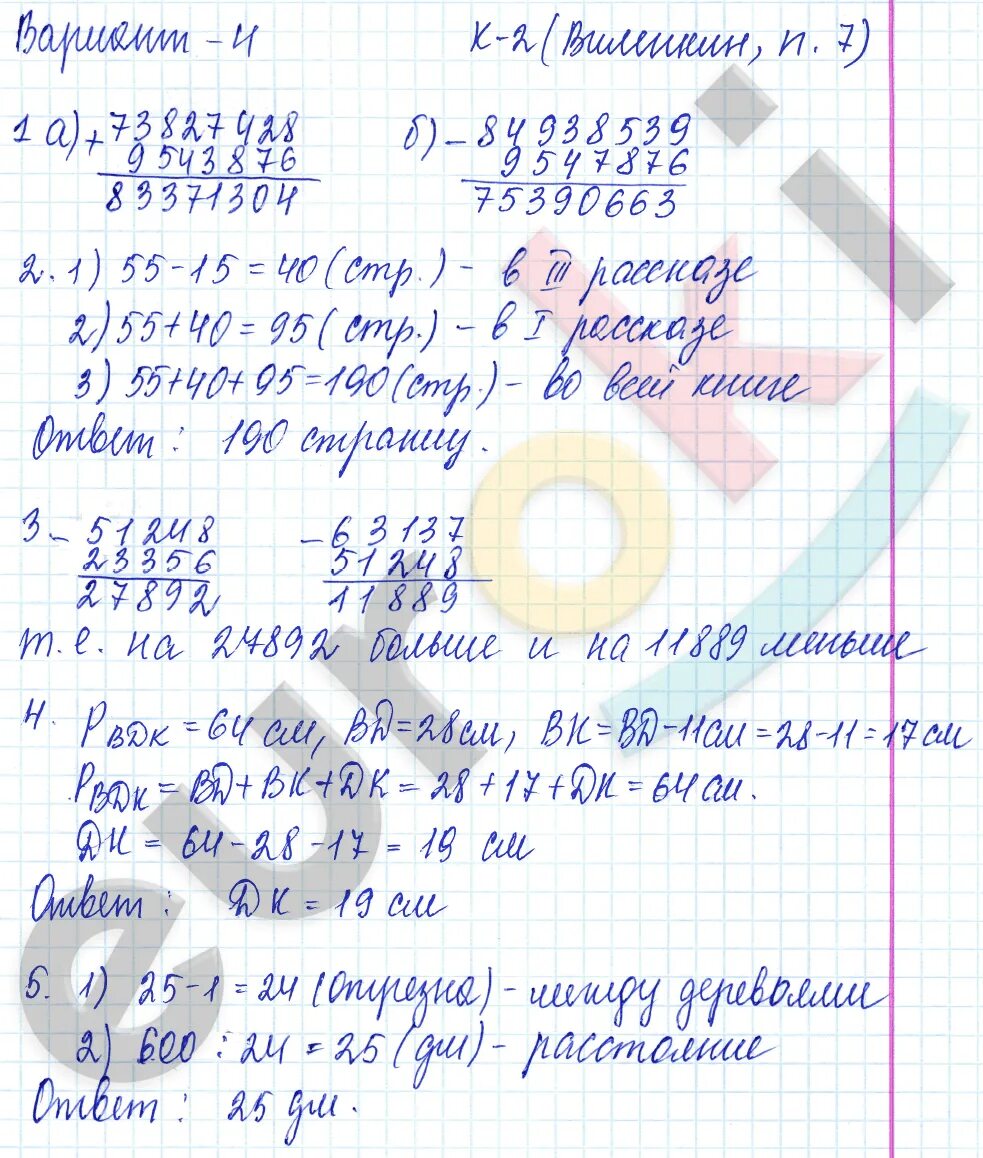 Вариант - 4 К-2 (Виленкин, п. 7)
1 а) + 73827428 б) - 84938539
9543876 9547876
83371304 75390663
2. 1) 55-15=40 (стр.) - в III рассказе
2) 55+40=95 (стр.) - в I рассказе
3) 55+40+95=190 (стр.) - во всей книге
Ответ: 190 страниц.
3 - 51248 - 63137
23356 51248
27892 11889
т.е. на 27892 больше и на 11889 меньше
4. P_BDK = 64 см, BD=28см, BK=BD-11см=28-11=17см
P_BDK = BD+BK+DK = 28+17+DK=64см.
DK = 64-28-17 = 19 см
Ответ: DK = 19 см
5. 1) 25-1=24 (отрезка) - между деревьями
2) 600 : 24 = 25 (дм) - расстояние
Ответ: 25 дм.
euroki